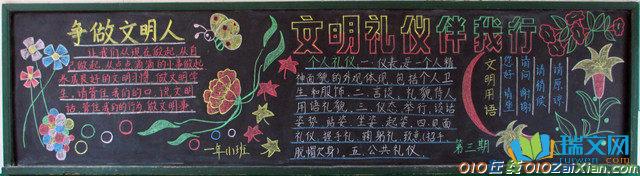 争做文明人
让我们从现在做起,从自
己做起,从点点滴滴的小事做起
养成良好的文明习惯,做文明学
生。请管住我们的口,说文明
话,管住我们的行为,做文明事。
一年(1)班
文明礼仪伴我行
个人礼仪:一、仪表是一个人精
神面貌的外观体现,包括个人卫
生和服饰。二、言谈,礼貌待人
用语礼貌。三、仪态举行,谈话
姿势 站姿 坐姿 起姿 四、见面
礼仪,握手礼 鞠躬礼,致意(招手
脱帽欠身)。五、公共礼仪。
第三期
文明用语
您好 请坐
请问 谢谢
请稍候
请原谅
瑞文网
ruiwen.com
010在线 010ZaiXian.com